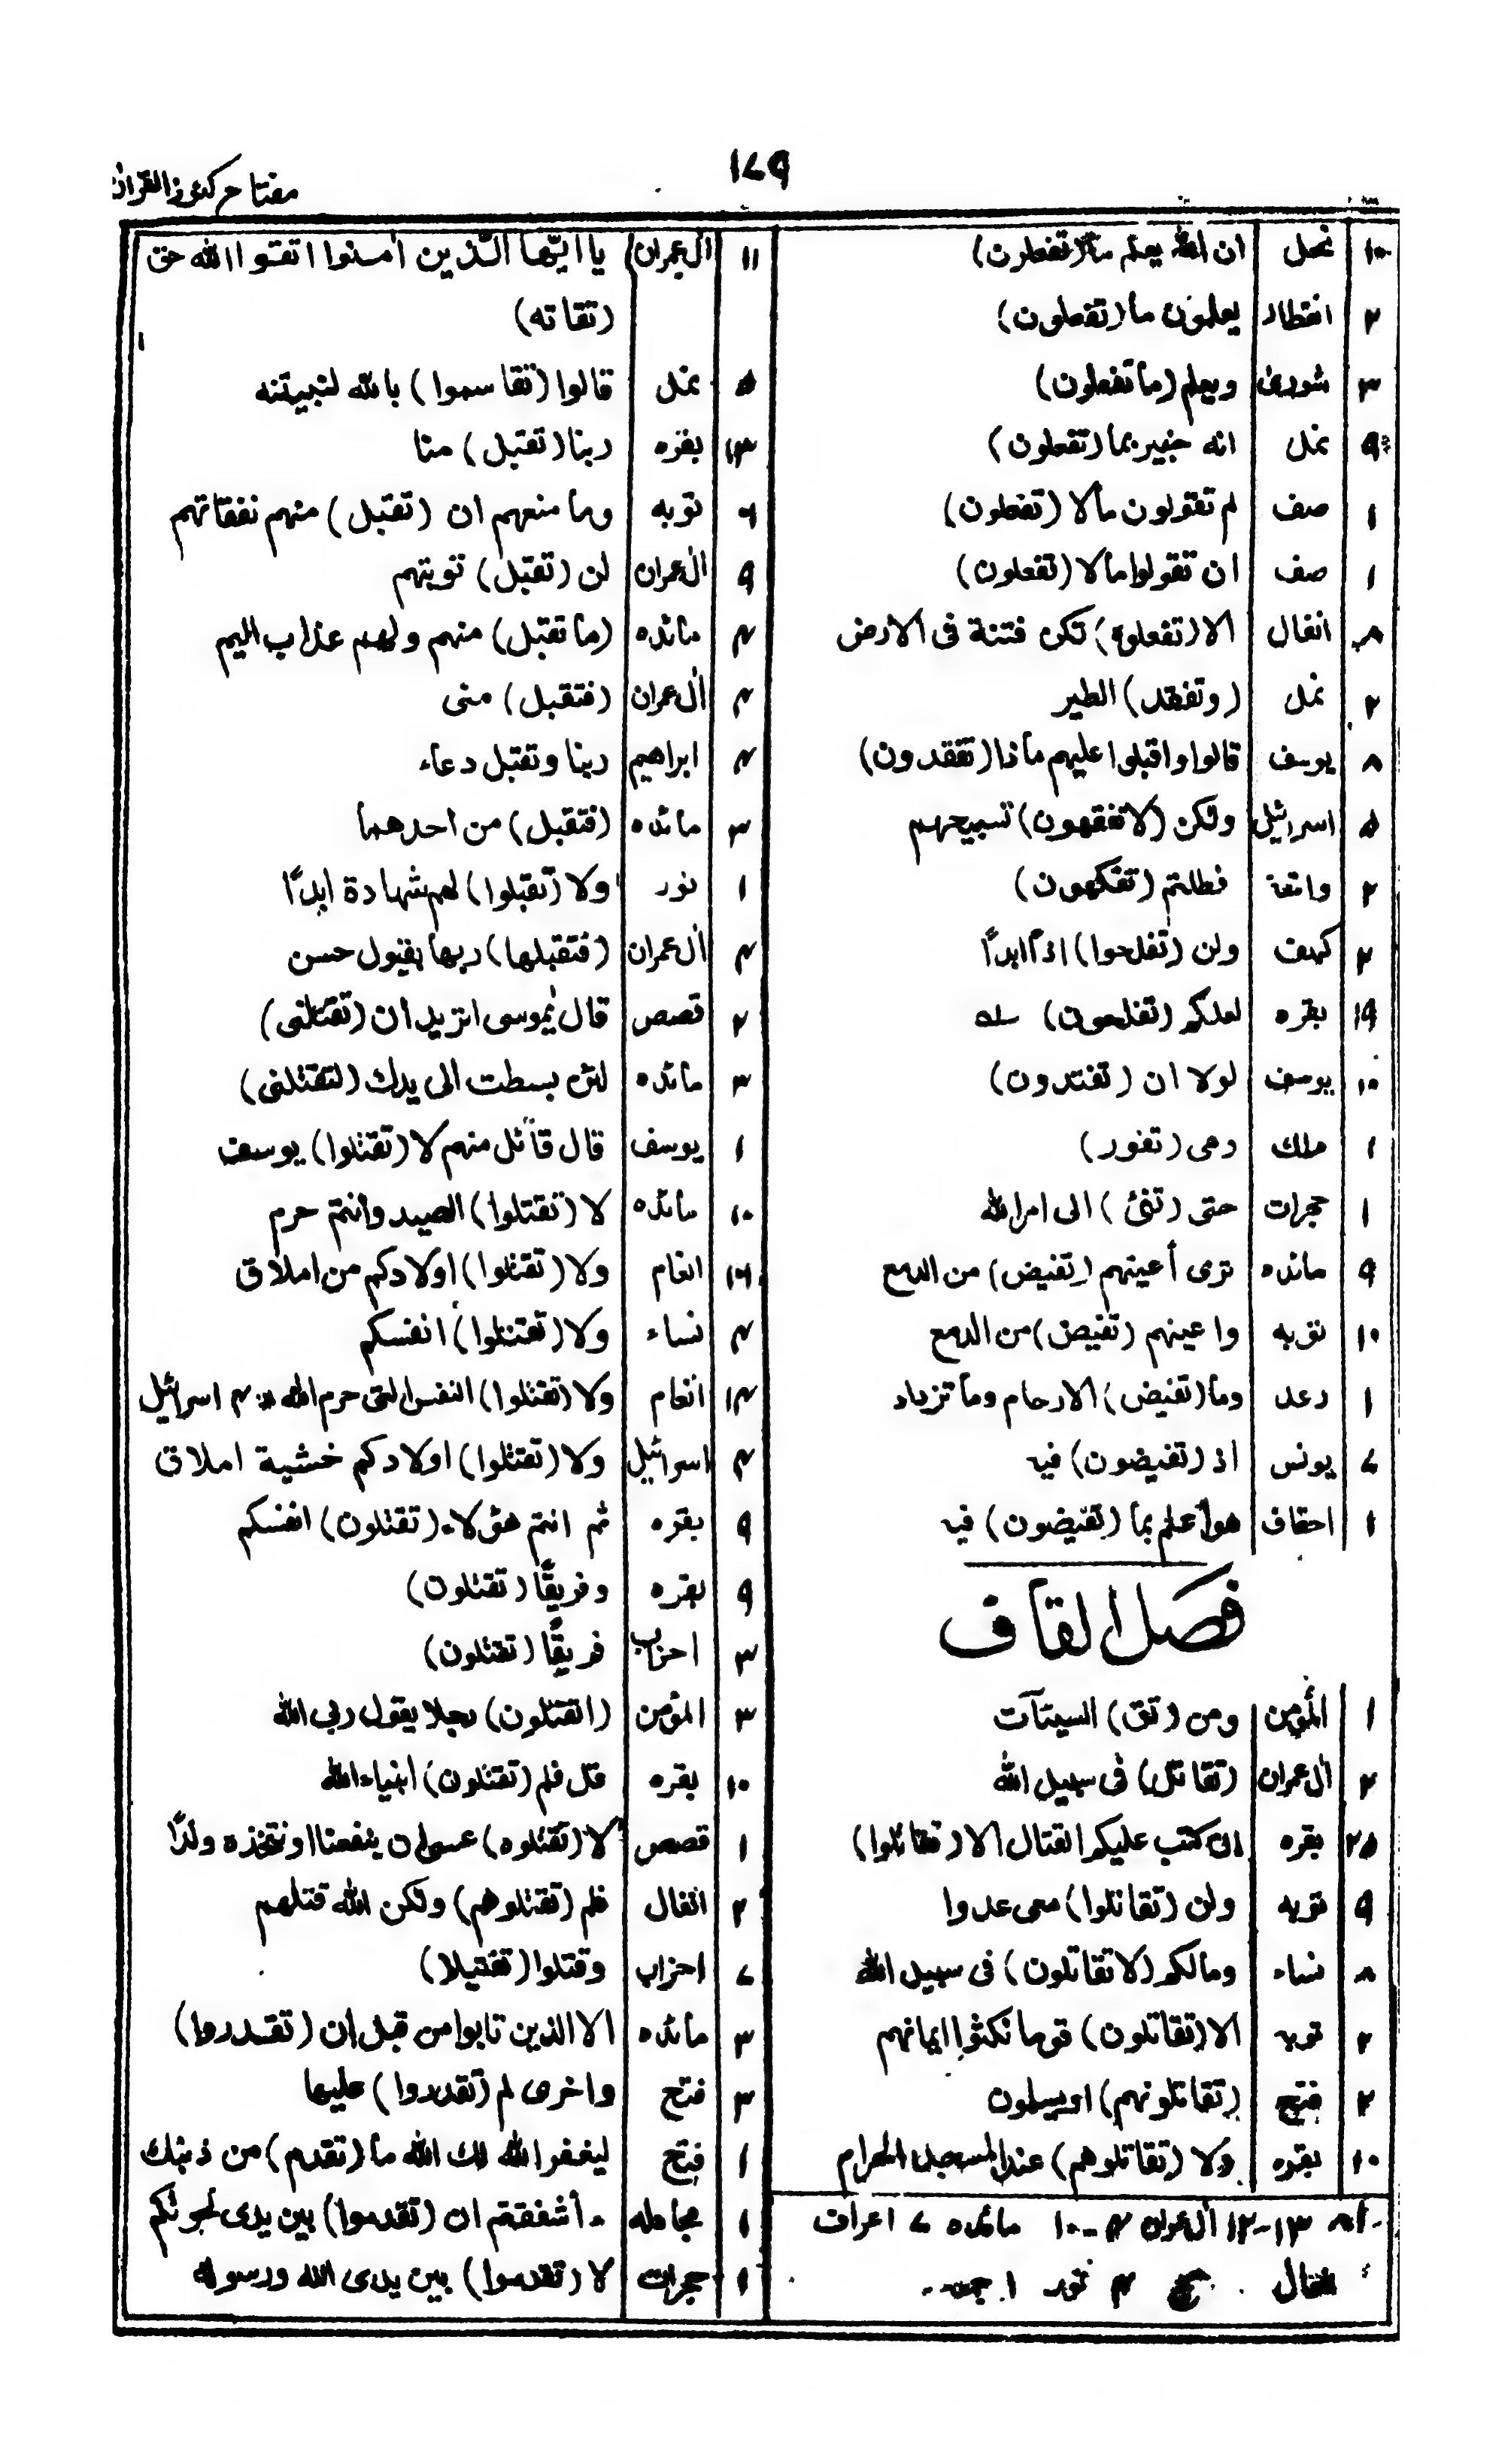 ۱۷۹
مفتاح کنوز القرآن
۱۰ نحل ان الله يعلم ما (تفعلون)
۲ انفطار يعلمون ما (تفعلون)
۳ شوری ويعلم (ما تفعلون)
نمل انه خبير بما (تفعلون)
۱ صف لم تقولون مالا (تفعلون)
۱ صف ان تقولوا مالا (تفعلون)
انفال الا (تفعلوه) تكن فتنة فى الارض
۲ نمل (وتفقد) الطير
۸ يوسف قالوا واقبلوا عليهم ماذا (تفقدون)
۵ اسرائيل ولكن (لا تفقهون) تسبيحهم
۲ واقعة فظلتم (تفكهون)
۲ كهف ولن (تفلحوا) اذًا ابدًا
۱۹ بقره لعلكم (تفلحون) سله
۱۰ يوسف لولا ان (تفندون)
۱ ملك وهى (تفور)
۱ حجرات حتى (تفئ) الى امر الله
۹ مائده ترى أعينهم (تفيض) من الدمع
۱۰ توبه واعينهم (تفيض) من الدمع
۱ رعد وما (تفيض) الارحام وما تزداد
۷ يونس اذ (تفيضون) فيه
۱ احقاف هو أعلم بما (تفيضون) فيه
فصل القاف
۱ المؤمن ومن (تق) السيئآت
۲ أل عمران (تقاتل) فى سبيل الله
بقره ان كتب عليكم القتال الا (تقاتلوا)
۹ توبه ولن (تقاتلوا) معى عدوا
۸ نساء ومالكم (لا تقاتلون) فى سبيل الله
۲ توبه الا (تقاتلون) قوما نكثوا ايمانهم
۲ فتح (تقاتلونهم) او يسلمون
بقره ولا (تقاتلوهم) عند المسجد الحرام
۱۳-۱۲ أل عمران ۴-۱۰ مائده ۷ اعراف
انفال ۴ نور ۱
۱۱ أل عمران يا ايّها الّذين أمنوا اتقوا الله حق
(تقاته)
۵ نمل قالوا (تقاسموا) بالله لنبيتنه
بقره ربنا (تقبل) منا
توبه وما منعهم ان (تقبل) منهم نفقاتهم
۹ أل عمران لن (تقبل) توبتهم
مائده (ما تقبل) منهم ولهم عذاب اليم
۴ أل عمران (فتقبل) منى
ابراهيم ربنا وتقبل دعاء
۳ مائده (فتقبل) من احدهما
۱ نور ولا (تقبلوا) لهم شهادة ابدًا
۴ أل عمران (فتقبلها) ربها بقبول حسن
۲ قصص قال يٰموسى اتريد ان (تقتلنى)
۳ مائده لئن بسطت الى يدك (لتقتلنى)
۱ يوسف قال قآئل منهم لا (تقتلوا) يوسف
۱۰ مائده لا (تقتلوا) الصيد وانتم حرم
انعام ولا (تقتلوا) اولادكم من املاق
نساء ولا (تقتلوا) انفسكم
۱۴ انعام ولا (تقتلوا) النفس التى حرم الله ۴ اسرائيل
۴ اسرائيل ولا (تقتلوا) اولادكم خشية املاق
۹ بقره ثم انتم هؤلاء (تقتلون) انفسكم
۹ بقره وفريقًا (تقتلون)
۳ احزاب فريقًا (تقتلون)
۳ المؤمن (اتقتلون) رجلا يقول ربى الله
۱۰ بقره قل فلم (تقتلون) انبياء الله
۱ قصص لا (تقتلوه) عسى ان ينفعنا او نتخذه ولدًا
۲ انفال فلم (تقتلوهم) ولكن الله قتلهم
۷ احزاب وقتلوا (تقتيلا)
۳ مائده الا الذين تابوا من قبل ان (تقدروا)
۳ فتح واخرى لم (تقدروا) عليها
۱ فتح ليغفر الله لك الله ما (تقدم) من ذنبك
۱ مجادله أشفقتم ان (تقدموا) بين يدى نجوٰىكم
۱ حجرات لا (تقدموا) بين يدى الله ورسوله